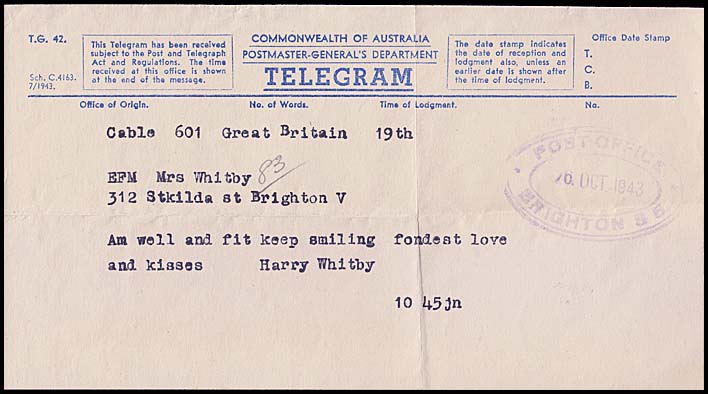 T.G. 42.
Sch. C.4163.
7/1943.
This Telegram has been received
subject to the Post and Telegraph
Act and Regulations. The time
received at this office is shown
at the end of the message.
COMMONWEALTH OF AUSTRALIA
POSTMASTER-GENERAL'S DEPARTMENT
TELEGRAM
The date stamp indicates
the date of reception and
lodgment also, unless an
earlier date is shown after
the time of lodgment.
Office Date Stamp
T.
C.
B.
Office of Origin. No. of Words. Time of Lodgment. No.
Cable 601 Great Britain 19th
EFM Mrs Whitby
83
312 Stkilda st Brighton V
POST OFFICE
OCT. 1943
BRIGHTON S 5
Am well and fit keep smiling fondest love
and kisses Harry Whitby
10 45jn